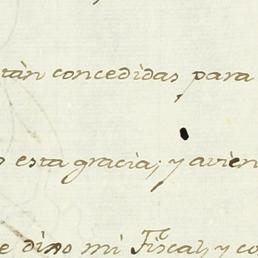 tàn concedidas para
esta gracia; y avien
e dixo mi Fiscal, y co